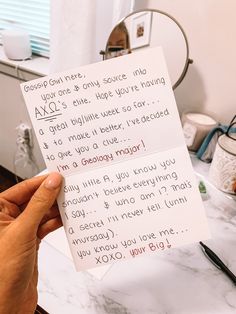 Gossip Girl here,
your one & only source into
AXΩ's elite. Hope you're having
a great big/little week so far...
& to make it better, I've decided
to give you a clue...
I'm a Geology major!
Silly little A, you know you
shouldn't believe everything
I say... & who am I? That's
a secret I'll never tell (until
thursday).
you know you love me...
XOXO, your Big!